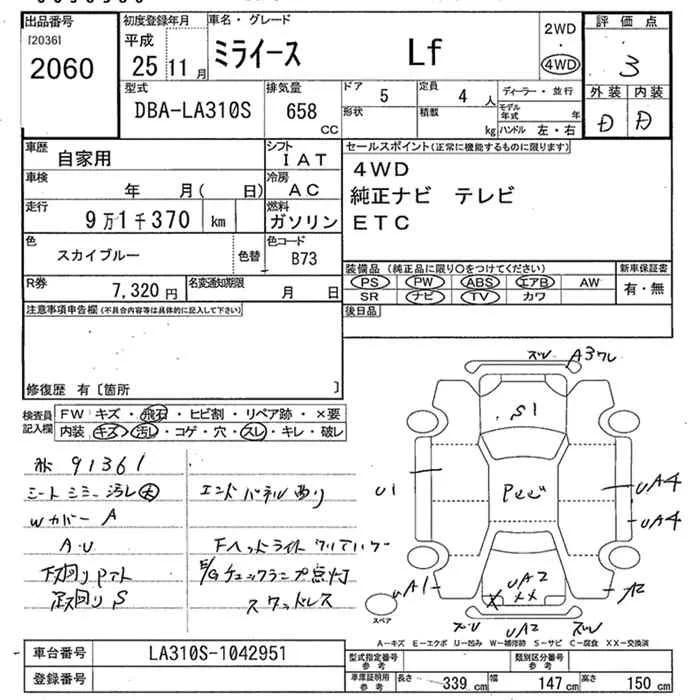 出品番号
[2036]
2060
初度登録年月
平成
25 11月
車名・グレード
ミライース Lf
2WD
・
4WD
評価点
3
外装 内装
D D
型式
DBA-LA310S
排気量
658
CC
ドア
5
定員
4人
ディーラー・並行
形状
積載
kg
モデル
年式 年
ハンドル 左・右
車歴
自家用
シフト
IAT
車検
年 月( 日)
冷房
AC
走行
9万1千370 km
燃料
ガソリン
色
スカイブルー
色替
色コード
B73
R券
7,320円
名変通知期限
月 日
セールスポイント(正常に機能するものに限ります)
4WD
純正ナビ テレビ
ETC
装備品 (純正品に限り○をつけてください)
PS PW ABS エアB AW
SR ナビ TV カワ
新車保証書
有・無
後日品
注意事項申告欄(不具合内容等は具体的に記入して下さい)
修復歴 有〔箇所 〕
検査員
記入欄
FW キズ・飛石・ヒビ割・リペア跡・×要
内装 キズ・汚レ・コゲ・穴・スレ・キレ・破レ
91361
シートシミ汚レ大
Wカバー A
A・U
下回り
足回り S
エンドパネル
Fヘッドライト
E/Gチェックランプ点灯
スタッドレス
ズレ A3ワレ
S1
U1
UA4
UA4
UA1
A2
UA2
XX
ズレ UA2 ズレ
スペア
A－キズ E－エクボ U－凹み W－補修跡 S－サビ C－腐食 XX－交換済
車台番号
LA310S-1042951
登録番号
型式指定番号
参考
類別区分番号
参考
車庫証明用
参考
長さ 339 cm 幅 147 cm 高さ 150 cm